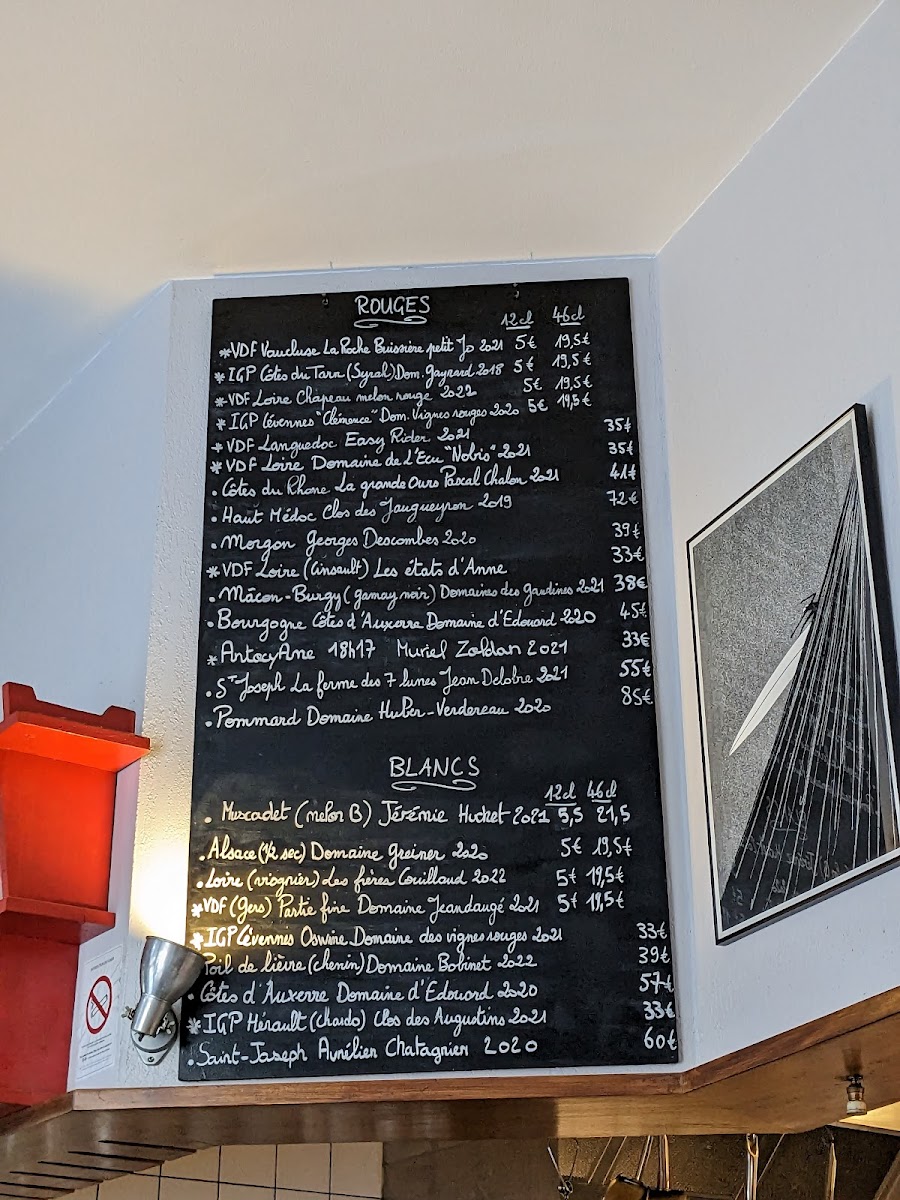 ROUGES
12cl 46cl
*VDF Vaucluse La Roche Buissière petit Jo 2021 5€ 19,5€
*IGP Côtes du Tarn (Syrah) Dom. Gayrard 2018 5€ 19,5€
*VDF Loire Chapeau melon rouge 2022 5€ 19,5€
*IGP Cévennes "Clémence" Dom. Vignes rouges 2020 5€ 19,5€
*VDF Languedoc Easy Rider 2021 35€
*VDF Loire Domaine de L'Ecu "Nobis" 2021 35€
. Côtes du Rhone La grande Ours Pascal Chalon 2021 41€
. Haut Médoc Clos des Jaugueyron 2019 72€
. Morgon Georges Descombes 2020 39€
*VDF Loire (Cinsault) Les états d'Anne 33€
. Mâcon-Burgy (gamay noir) Domaines des gandines 2021 38€
. Bourgogne Côtes d'Auxerre Domaine d'Edouard 2020 45€
*AntocyAne 18h17 Muriel Zoldan 2021 33€
. St Joseph La ferme des 7 lunes Jean Delobre 2021 55€
. Pommard Domaine Huber-Verdereau 2020 85€
BLANCS
12cl 46cl
. Muscadet (melon B) Jérémie Huchet 2021 5,5 21,5
. Alsace (1/2 sec) Domaine Greiner 2020 5€ 19,5€
. Loire (viognier) Les frères Couillaud 2022 5€ 19,5€
*VDF (Gers) Partie fine Domaine Jeandaugé 2021 5€ 19,5€
*IGP Cévennes Oswine Domaine des vignes rouges 2021 33€
Poil de lièvre (chenin) Domaine Bobinet 2022 39€
. Côtes d'Auxerre Domaine d'Edouard 2020 57€
*IGP Hérault (Chardo) Clos des Augustins 2021 33€
. Saint-Joseph Aurélien Chatagnier 2020 60€